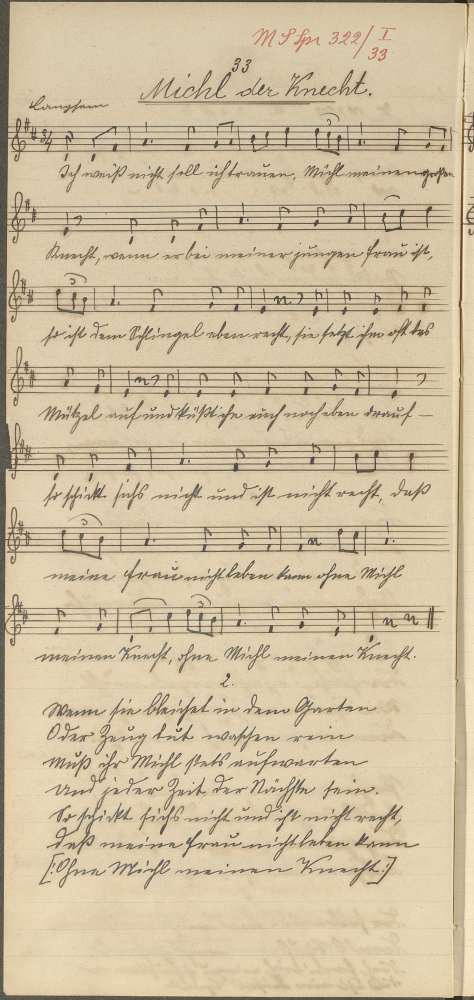 MS Spr 322/I
33
33
Michl der Knecht.
Langsam
Ich weiß nicht soll ich trauen, Michl meinen großen
Knecht, wenn er bei meiner jungen Frau ist,
so ist dem Schlingel eben recht, sie setzt ihm oft das
Mützel auf und küßt ihn auch noch eben drauf –
so schickt sichs nicht und ist nicht recht, daß
meine Frau nicht leben kann ohne Michl
meinen Knecht, ohne Michl meinen Knecht.
2.
Wenn sie bleichet in dem Garten
Oder Zeug tut waschen rein
Muß ihr Michl stets aufwarten
Und jeder Zeit der Nächste sein.
So schickt sichs nicht und ist nicht recht,
daß meine Frau nicht leben kann
[: Ohne Michl meinen Knecht :]